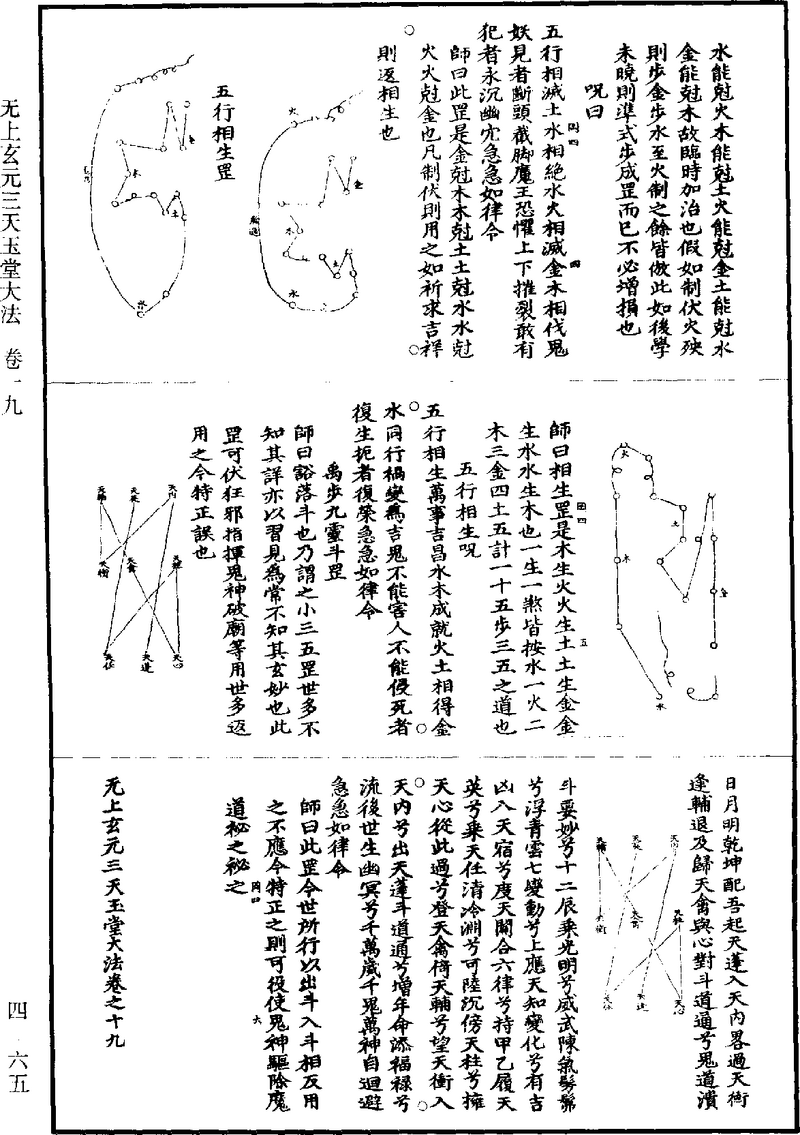 水能尅火木能尅土火能尅金土能尅水
金能尅木故臨時加治也假如制伏火殃
則步金步水至火制之餘皆倣此如後學
未曉則準式步成罡而已不必增損也
呪曰
五行相滅土水相絕水火相滅金木相伐鬼
妖見者斷頭截脚魔王恐懼上下摧裂敢有
犯者永沉幽宂急急如律令
師曰此罡是金尅木木尅土土尅水水尅
火火尅金也凡制伏則用之如祈求吉祥
則返相生也
火
金
木
土
水
五行相生罡
金
木
土
水
火
土
金
木
水
師曰相生罡是木生火火生土土生金金
生水水生木也一生一煞皆按水一火二
木三金四土五計一十五步三五之道也
五行相生呪
五行相生萬事吉昌水木成就火土相得金
水同行禍變爲吉鬼不能害人不能侵死者
復生扼者復榮急急如律令
禹步九靈斗罡
師曰豁落斗也乃謂之小三五罡世多不
知其詳亦以習見爲常不知其玄妙也此
罡可伏狂邪指揮鬼神破廟等用世多返
用之今特正誤也
天內
天英
天輔
天柱
天禽
天衝
天心
天蓬
天任
日月明乾坤配吾起天蓬入天內畧過天衝
逢輔退及歸天禽與心對斗道通兮鬼道潰
天內
天英
天輔
天柱
天禽
天衝
天心
天蓬
天任
斗要妙兮十二辰乘光明兮威武陳氣髣髴
兮浮青雲七變動兮上應天知變化兮有吉
凶入天宿兮度天關合六律兮持甲乙履天
英兮乘天任清冷淵兮可陸沉傍天柱兮擁
天心從此過兮登天禽倚天輔兮望天衝入
天內兮出天蓬斗道通兮增年命添福祿兮
流後世生幽冥兮千萬歲千鬼萬神自迴避
急急如律令
師曰此罡今世所行以出斗入斗相反用
之不應今特正之則可役使鬼神驅除魔
道祕之祕之
无上玄元三天玉堂大法卷之十九
五
六
无上玄元三天玉堂大法 卷一九
四·六五